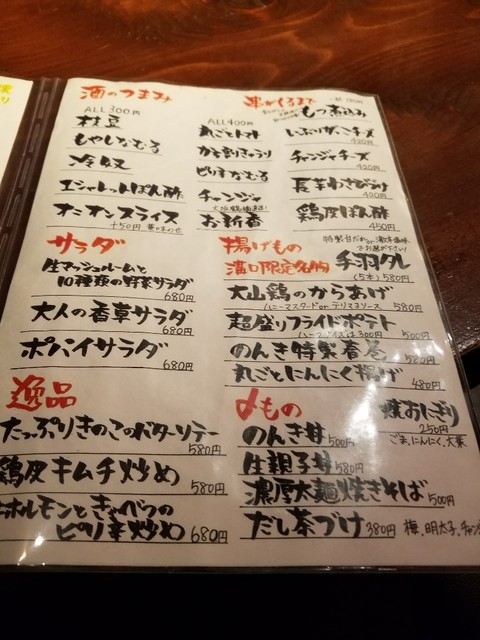 酒のつまみ
ALL300円
枝豆
もやしなむる
冷奴
エシャレットぽん酢
オニオンスライス
+50円
サラダ
生マッシュルームと
10種類の野菜サラダ
680円
大人の香草サラダ
680円
ポパイサラダ
680円
逸品
たっぷりきのこのバターソテー
580円
鶏皮キムチ炒め
580円
ホルモンときゃべつの
ピリ辛炒め 680円
串がくるまで
ALL400円
丸ごとトマト
かち割りきゅうり
ピリすなむる
チャンジャ
お新香
もつ煮込み
いぶりがっこチーズ
420円
チャンジャチーズ
420円
長芋わさび漬け
420円
鶏皮ぽん酢
450円
揚げもの
溝口限定名物 手羽タレ
特製甘だれor湯本塩味
でお選び下さい!
(5本) 580円
大山鶏のからあげ
ハニーマスタード or テリマヨソース 580円
超盛りフライドポテト
ハーフサイズは300円 500円
のんき特製春巻 580円
丸ごとにんにく揚げ 480円
〆もの
のんき丼 500円
生親子丼 580円
濃厚太麺焼きそば 500円
だし茶づけ 380円 梅、明太子、チャン
焼おにぎり
250円
ごま、にんにく、大葉